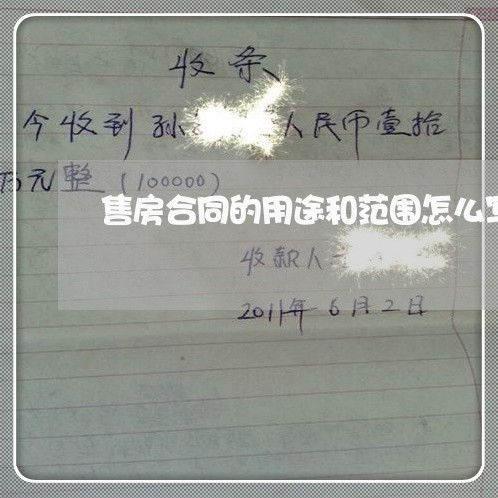 收条
今收到孙 人民币壹拾
万元整（100000）
售房合同的用途和范围怎么
收款人
2011年6月2日